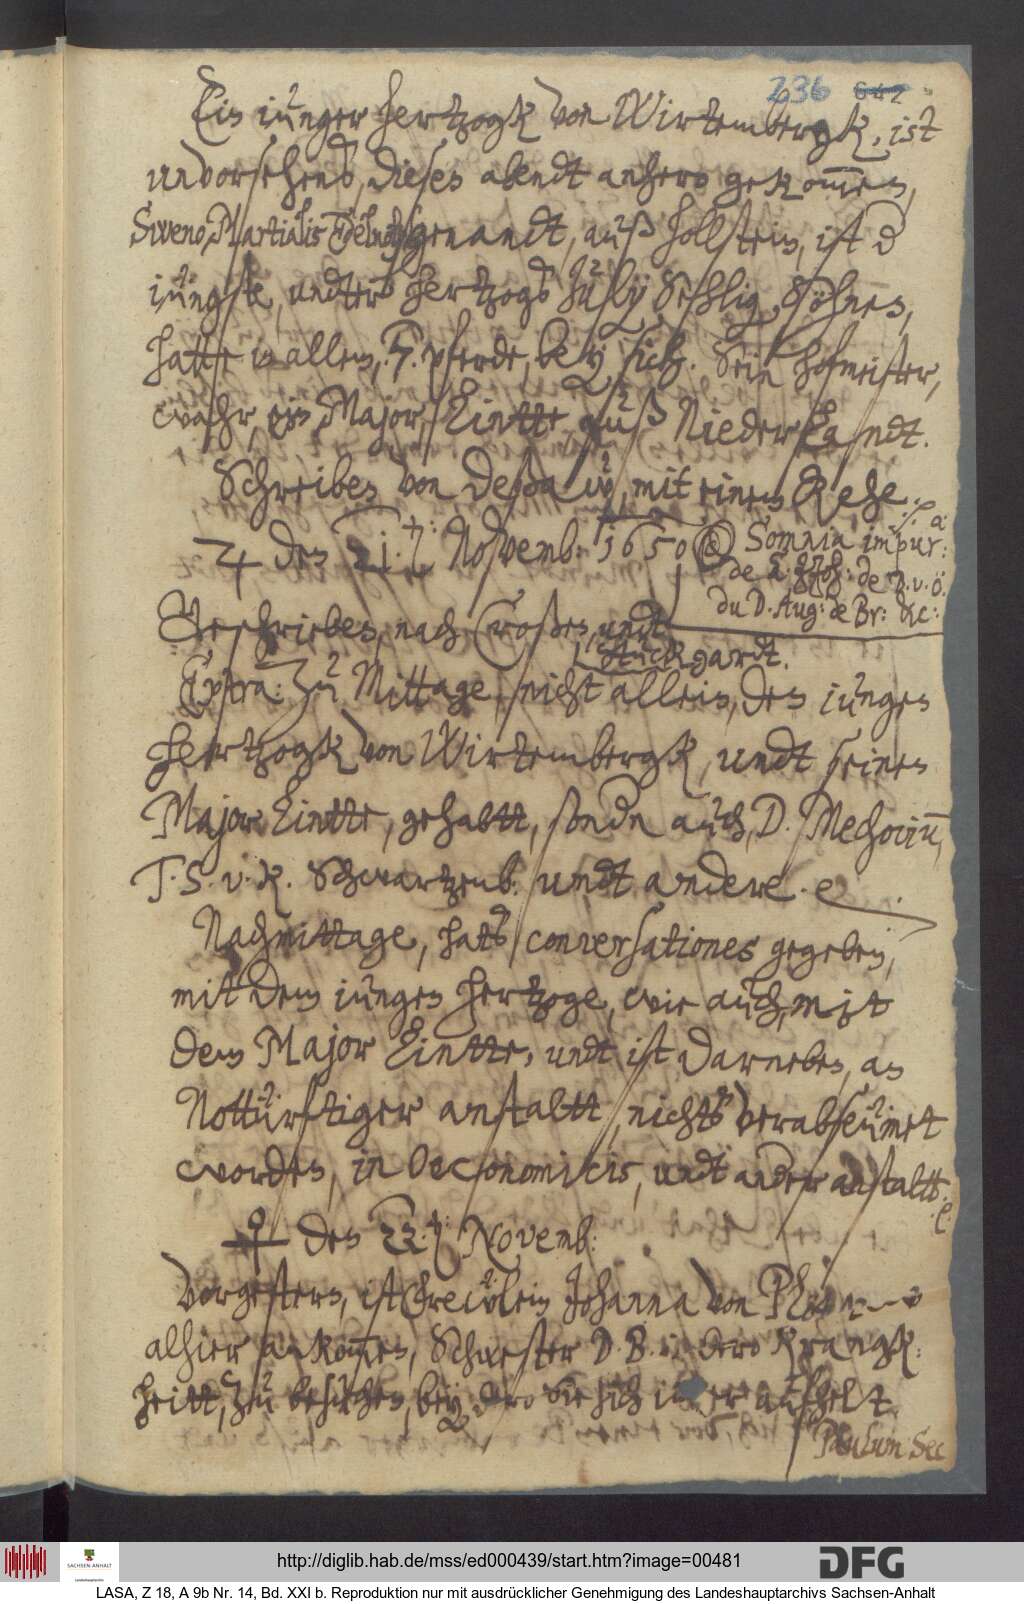 236 642
Ein iunger Hertzogk von Wirtembergk, ist
unvorsehends, dieses abendt anhero gekommen,
Siveno Martialis Edelmuht genandt, auß Hollstein, ist d
iüngste, undter Hertzogs July Sehlig Söhnen,
hatte in allem, 7. pferde, bey sich. Sein hofmeister,
wahr, ein Major, Eintte auß Niederlandt.
Schreiben von Deßaw, mit einem Rehe.
♃ den 21. Novemb: 1650
Somnia impur:
de
du D. Aug: de Br: &c:
Geschrieben, nach Croßen, undt
Stuckgardt.
Extra: Zu Mittage, nicht allein, den iungen
Hertzogk von Wirtembergk, undt seinen
Major Eintte, gehabtt, sondern auch, D. Mechovium,
T. S. v. K. Schwartzenb. undt andere. e
Nachmittags, hats conversationes gegeben,
mit dem iungen Hertzoge, wie auch, mit
dem Major Eintte, undt ist darneben, an
Notturftiger anstaltt, nichts verabseumet
worden, in Oeconomicis, undt ander anstaltt.
♀ den 22. Novemb:
Vorgestern, ist Freulein Johanna von
alhier ankommen, Schwester D. B. in dero Krangk:
heitt, zu besuchen, bey dero Sie sich immer aufhelt.
Paulum Sec
http://diglib.hab.de/mss/ed000439/start.htm?image=00481
SACHSEN-ANHALT
DFG
LASA, Z 18, A 9b Nr. 14, Bd. XXI b. Reproduktion nur mit ausdrücklicher Genehmigung des Landeshauptarchivs Sachsen-Anhalt